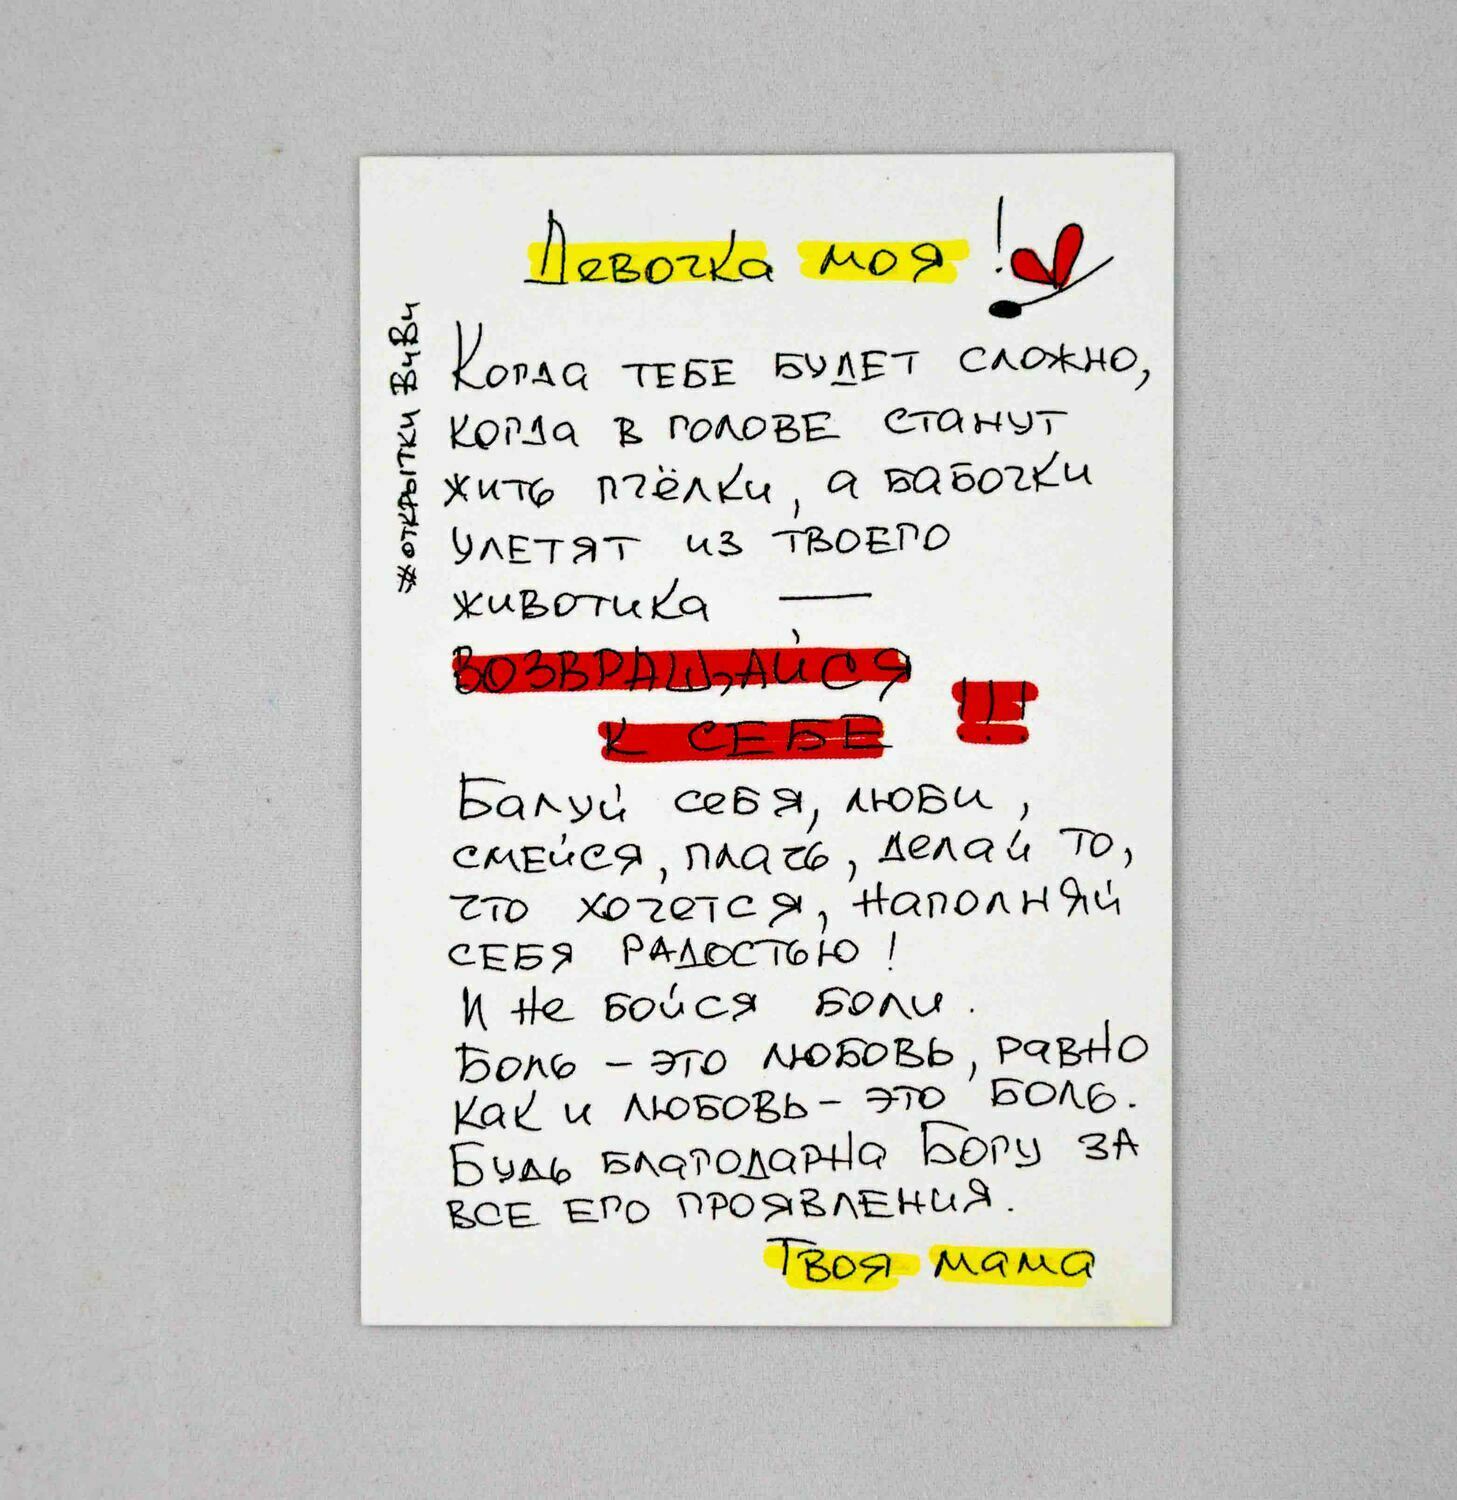 Девочка моя!
#открытки ВиВи
Когда тебе будет сложно,
когда в голове станут
жить пчёлки, а бабочки
улетят из твоего
животика —
ВОЗВРАЩАЙСЯ
К СЕБЕ !!!
Балуй себя, люби,
смейся, плачь, делай то,
что хочется, наполняй
себя радостью!
И не бойся боли.
Боль – это любовь, равно
как и любовь – это боль.
Будь благодарна Богу за
все его проявления.
Твоя мама